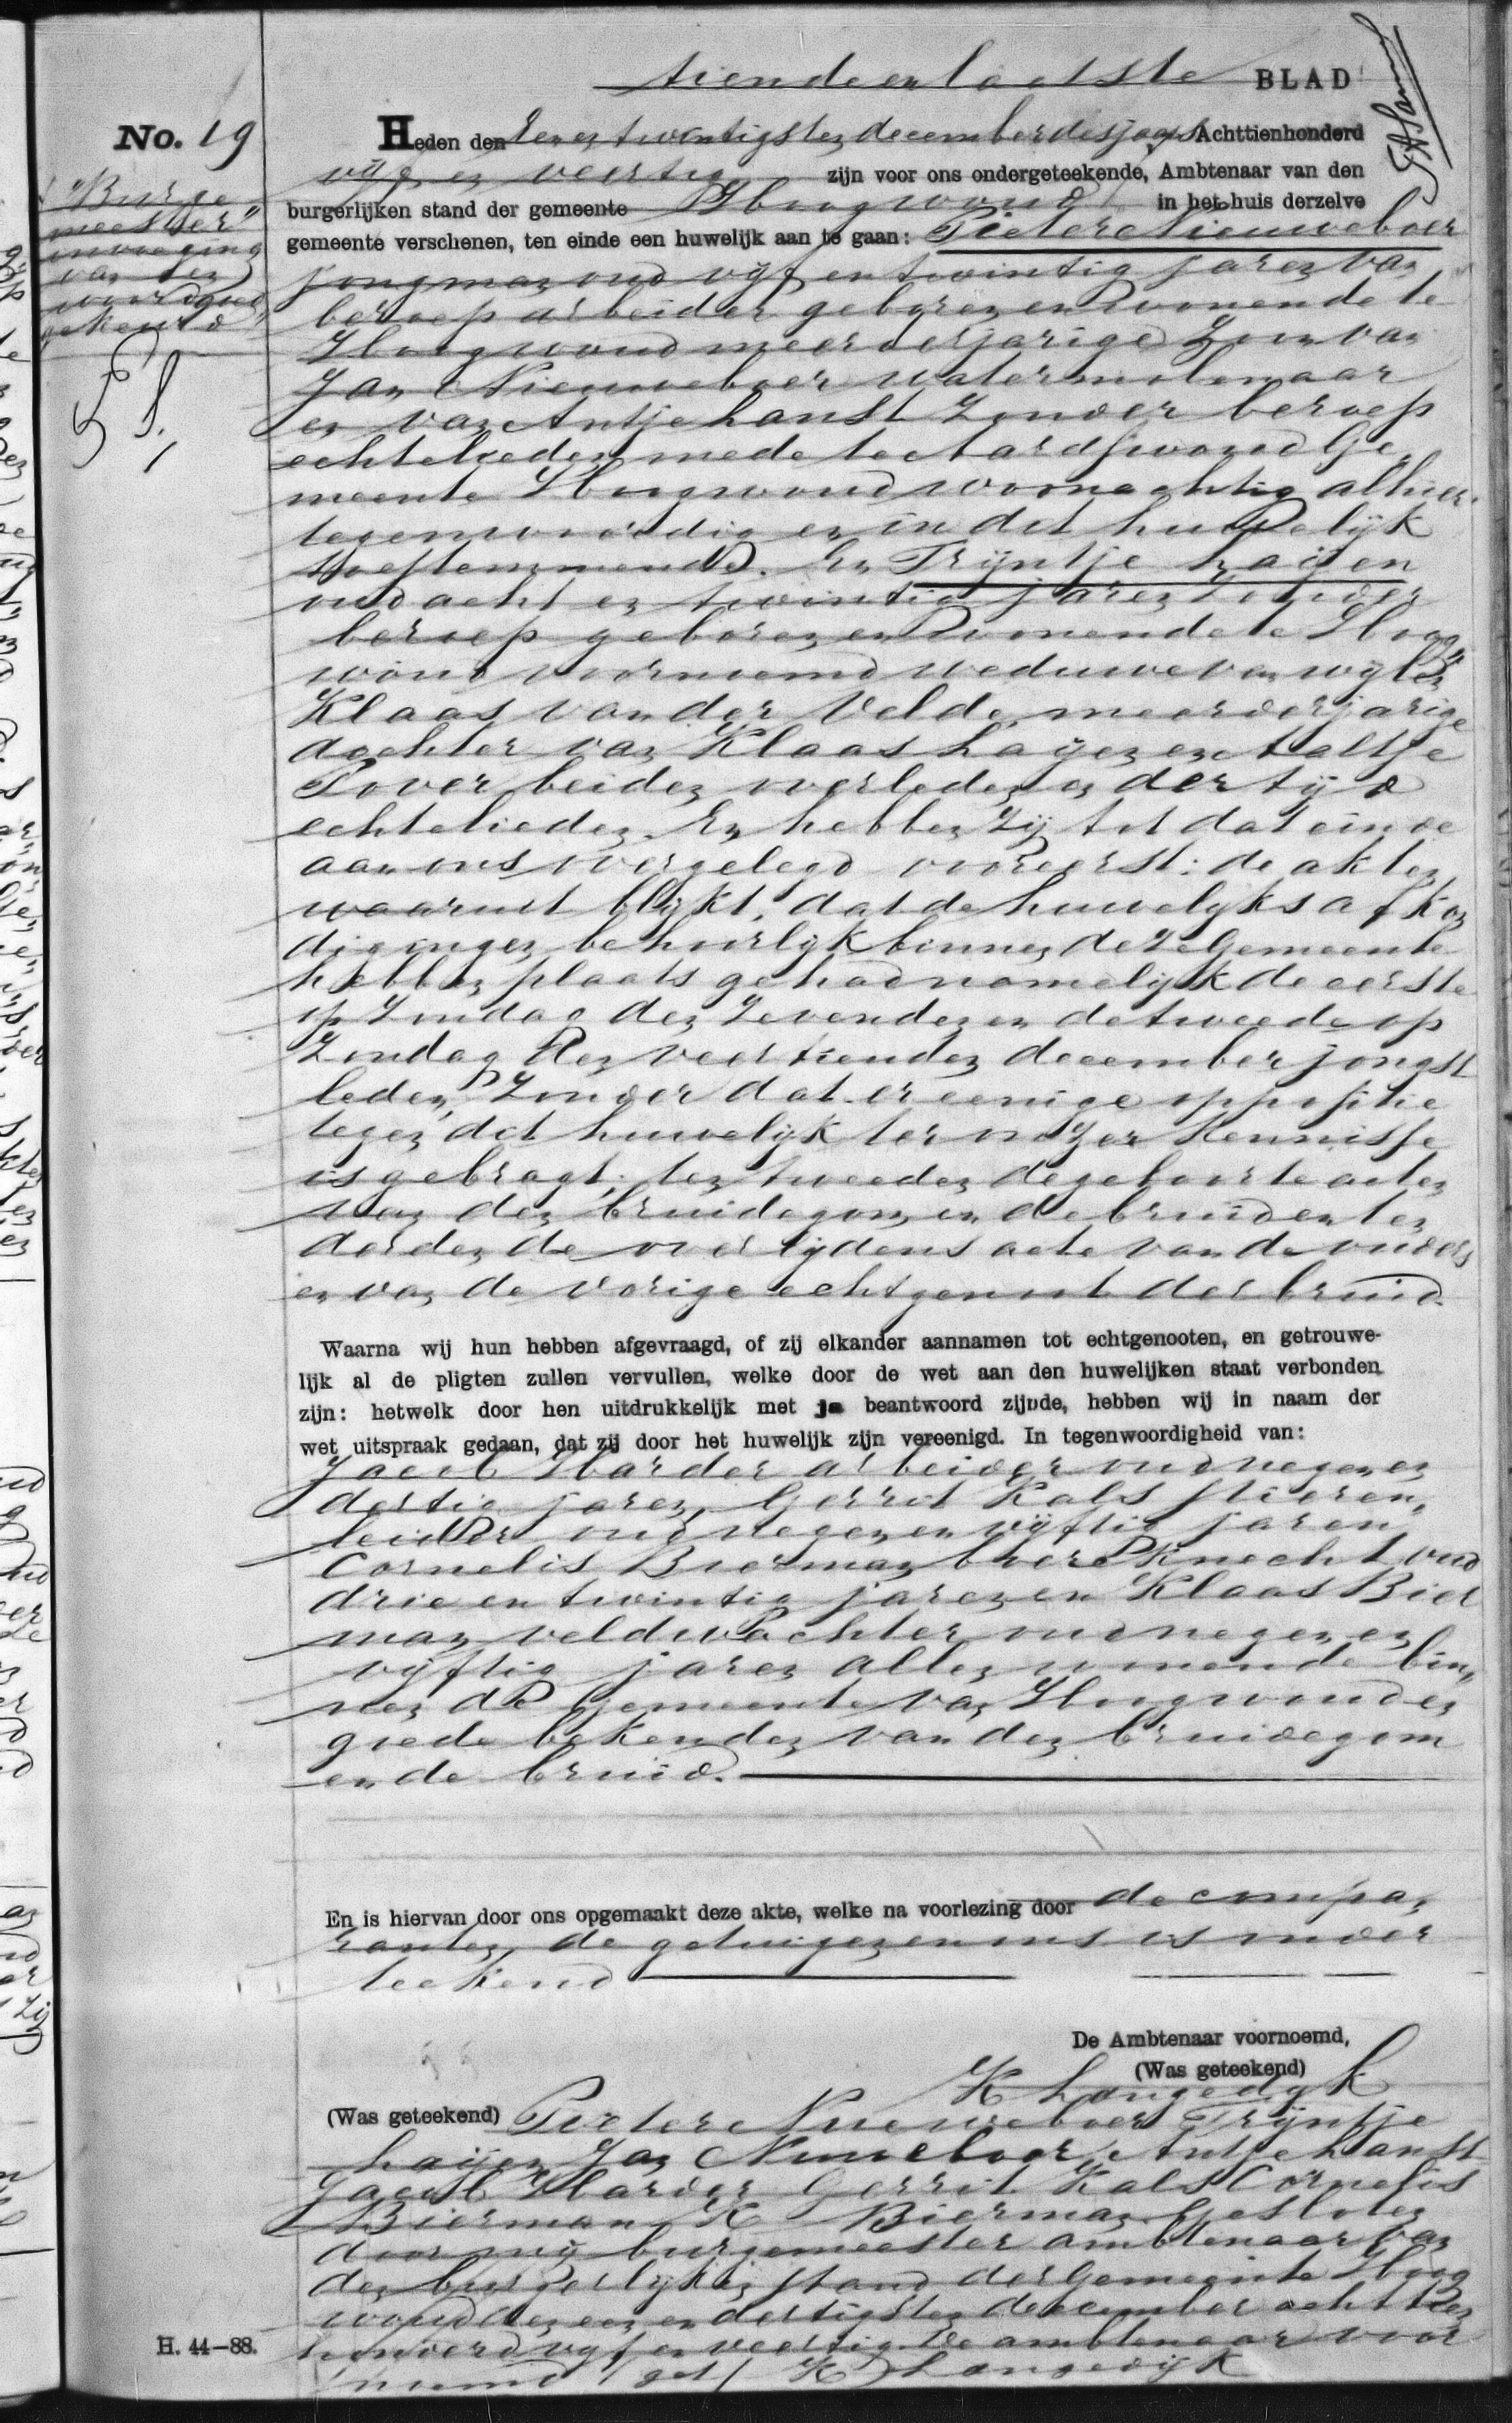 tiende en laatste BLAD
No. 19
Heden den een en twintigsten december des jaars Achttienhonderd
vijf en veertig zijn voor ons ondergeteekende, Ambtenaar van den
burgerlijken stand der gemeente Hoogwoud in het huis derzelve
gemeente verschenen, ten einde een huwelijk aan te gaan: Pieter Nieuweboer
"Burge
meester"
invoeging
van een
woord goed
gekeurd"
jongman oud vijf en twintig jaren van
beroep arbeider geboren en wonende te
Hoogwoud meerderjarige zoon van
Jan Nieuweboer watermolenaar
en van Antje Hanst zonder beroep
echtelieden mede te Aardswoud Ge
meente Hoogwoud woonachtig alhier
tegenwoordig en in dit huwelijk
toestemmende. En Trijntje Haijen
oud acht en twintig jaren zonder
beroep geboren en wonende te Hoog
woud voornoemd weduwe van wijlen
Klaas van der Velde, meerderjarige
dochter van Klaas Haijen en Aaltje
Pover beiden overleden in der tijd
echtelieden. En hebben zij tot dat einde
aan ons overgelegd vooreerst: de akten
waaruit blijkt, dat de huwelijks afkon
digingen behoorlijk binnen deze Gemeente
hebben plaats gehad namelijk de eerste
op Zondag den zevenden en de tweede op
Zondag den veertienden december jongst
leden, zonder dat er eenige oppositie
tegen dit huwelijk ter onzer kennisse
is gebragt; ten tweeden de geboorte acten
van den bruidegom en de bruid en ten
derden de overlijdens acte van de ouders
en van de vorige echtgenoot der bruid.
Waarna wij hun hebben afgevraagd, of zij elkander aannamen tot echtgenooten, en getrouwe-
lijk al de pligten zullen vervullen, welke door de wet aan den huwelijken staat verbonden
zijn: hetwelk door hen uitdrukkelijk met ja beantwoord zijnde, hebben wij in naam der
wet uitspraak gedaan, dat zij door het huwelijk zijn vereenigd. In tegenwoordigheid van:
Jacob Harder arbeider oud negen en
dertig jaren, Gerrit Kals stieren,
leider oud negen en vijftig jaren,
Cornelis Bierman boere knecht oud
drie en twintig jaren en Klaas Bier
man veldwachter oud negen en
vijftig jaren allen wonende bin,
nen de Gemeente van Hoogwoud en
goede bekenden van den bruidegom
en de bruid.
En is hiervan door ons opgemaakt deze akte, welke na voorlezing door de compa,
ranten, de getuigen en ons is onder
teekend
De Ambtenaar voornoemd,
(Was geteekend)
K Langedijk
(Was geteekend) Pieter Nieuweboer Trijntje
Haijen Jan Nieuweboer, Antje Hanst
Jacob Harder Gerrit Kals Cornelis
Bierman K Bierman Gesloten
door mij burgemeester ambtenaar van
den burgerlijken stand der Gemeente Hoog
woud den een en dertigsten december achttien
honderd vijf en veertig De ambtenaar voor
noemd /get/ K Langedijk
H. 44-88.